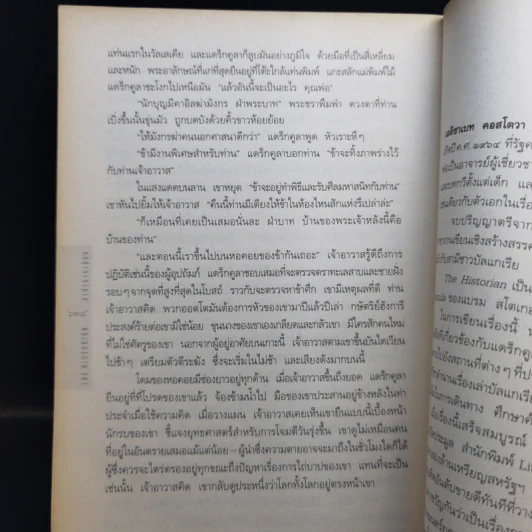 แท่นแรกในวัลเลเคีย และแดร็กคูลาก็ลูบมันอย่างภูมิใจ ด้วยมือที่เป็นสี่เหลี่ยม
และหนัก พระอาลักษณ์ที่แก่ที่สุดยืนอยู่ที่โต๊ะใกล้แท่นพิมพ์ แกะสลักแม่พิมพ์ไม้
แดร็กคูลาชะโงกไปเหนือมัน “แล้วอันนี้จะเป็นอะไร คุณพ่อ”
“นักบุญมีคาอิลฆ่ามังกร ฝ่าพระบาท” พระชราพึมพำ ดวงตาที่ท่าน
เบิ่งขึ้นนั้นขุ่นมัว ถูกบดบังด้วยคิ้วขาวห้อยย้อย
“ให้มังกรฆ่าคนนอกศาสนาดีกว่า” แดร็กคูลาพูด หัวเราะหึๆ
“ข้ามีงานพิเศษสำหรับท่าน” แดร็กคูลาบอกท่าน “ข้าจะทิ้งภาพร่างไว้
กับท่านเจ้าอาวาส”
ในแสงแดดบนลาน เขาหยุด “ข้าจะอยู่ทำพิธีและรับศีลมหาสนิทกับท่าน”
เขาหันไปยิ้มให้เจ้าอาวาส “คืนนี้ท่านมีเตียงให้ข้าในห้องไหนสักแห่งรึเปล่าล่ะ”
“ก็เหมือนที่เคยเป็นเสมอนั่นละ ฝ่าบาท บ้านของพระเจ้าหลังนี้คือ
บ้านของท่าน”
“และตอนนี้เราขึ้นไปบนหอคอยของข้ากันเถอะ” เจ้าอาวาสรู้ดีถึงการ
ปฏิบัติเช่นนี้ของผู้อุปถัมภ์ แดร็กคูลาชอบเสมอที่จะตรวจตราทะเลสาบและชายฝั่ง
รอบๆจากจุดที่สูงที่สุดในโบสถ์ ราวกับจะตรวจหาข้าศึก เขามีเหตุผลที่ดี ท่าน
เจ้าอาวาสคิด พวกออตโตมันต้องการหัวของเขามาปีแล้วปีเล่า กษัตริย์ฮังการี
ประสงค์ร้ายต่อเขามิใช่น้อย ขุนนางของเขาเองเกลียดและกลัวเขา มีใครสักคนไหม
ที่ไม่ใช่ศัตรูของเขา นอกจากผู้อยู่อาศัยบนเกาะนี้ เจ้าอาวาสตามเขาขึ้นบันไดเวียน
ไปช้าๆ เตรียมตัวตีระฆัง ซึ่งจะเริ่มในไม่ช้า และเสียงดังมากบนนี้
โดมของหอคอยมีช่องยาวอยู่ทุกด้าน เมื่อเจ้าอาวาสขึ้นถึงยอด แดร็กคูลา
ยืนอยู่ที่ที่โปรดของเขาแล้ว จ้องข้ามน้ำไป มือของเขาประสานอยู่ข้างหลังในท่า
ประจำเมื่อใช้ความคิด เมื่อวางแผน เจ้าอาวาสเคยเห็นเขายืนแบบนี้เบื้องหน้า
นักรบของเขา ชี้แจงยุทธศาสตร์สำหรับการโจมตีวันรุ่งขึ้น เขาดูไม่เหมือนคน
ที่อยู่ในอันตรายเสมอแม้แต่น้อย–ผู้นำซึ่งความตายอาจจะมาถึงในชั่วโมงใดก็ได้
ผู้ซึ่งควรจะไตร่ตรองอยู่ทุกขณะถึงปัญหาเรื่องการไถ่บาปของเขา แทนที่จะเป็น
เช่นนั้น เจ้าอาวาสคิด เขากลับดูประหนึ่งว่าโลกทั้งโลกอยู่ตรงหน้าเขา
THE HISTORIAN
เอลิซาเบท คอสโตวา
เกิดปี ค.ศ. ๑๙๖๔ ที่รัฐค
พ่อเป็นอาจารย์ผู้เชี่ยวชา
จบปริญญาตรีจาก
The Historian เป็น
ของแบรม สโตเกอ
ในการเขียนเรื่องนี้